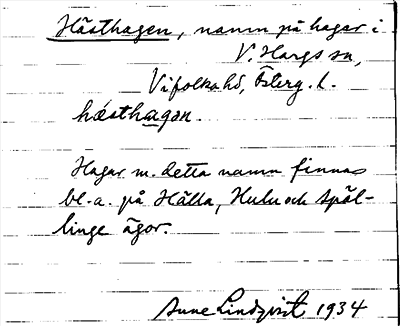 Hästhagen, namn på hagar i
V. Hargs sn,
Vifolka hd, Österg. l.
hǽsthagan.
Hagar m. detta namn finnas
bl. a. på Hälla, Hulu och Späl-
linge ägor.
Sune Lindqvist 1934